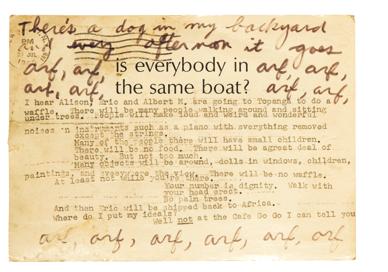 There's a dog in my backyard
every afternoon it goes
arf, arf, is everybody in arf, arf,
arf, arf, the same boat? arf, arf,
I hear Alison, Eric and Albert M. are going to Topanga to do a
waffle. There will be many people walking around and sitting
under trees. People will make loud and weird and wonderful
noises on instruments such as a piano with everything removed
except the strings.
Many of the people there will have small children.
There will be no food. There will be agreat deal of
beauty. But not too much.
Many objects will be around, dolls in windows, children,
paintings, and everywhere the view. There will be no waffle.
At least not while you're there.
Your number is dignity. Walk with
your head erect.
No palm trees.
And then Eric will be shipped back to Africa.
Where do I put my ideals?
Well not at the Cafe Go Go I can tell you
arf, arf, arf, arf, arf, arf